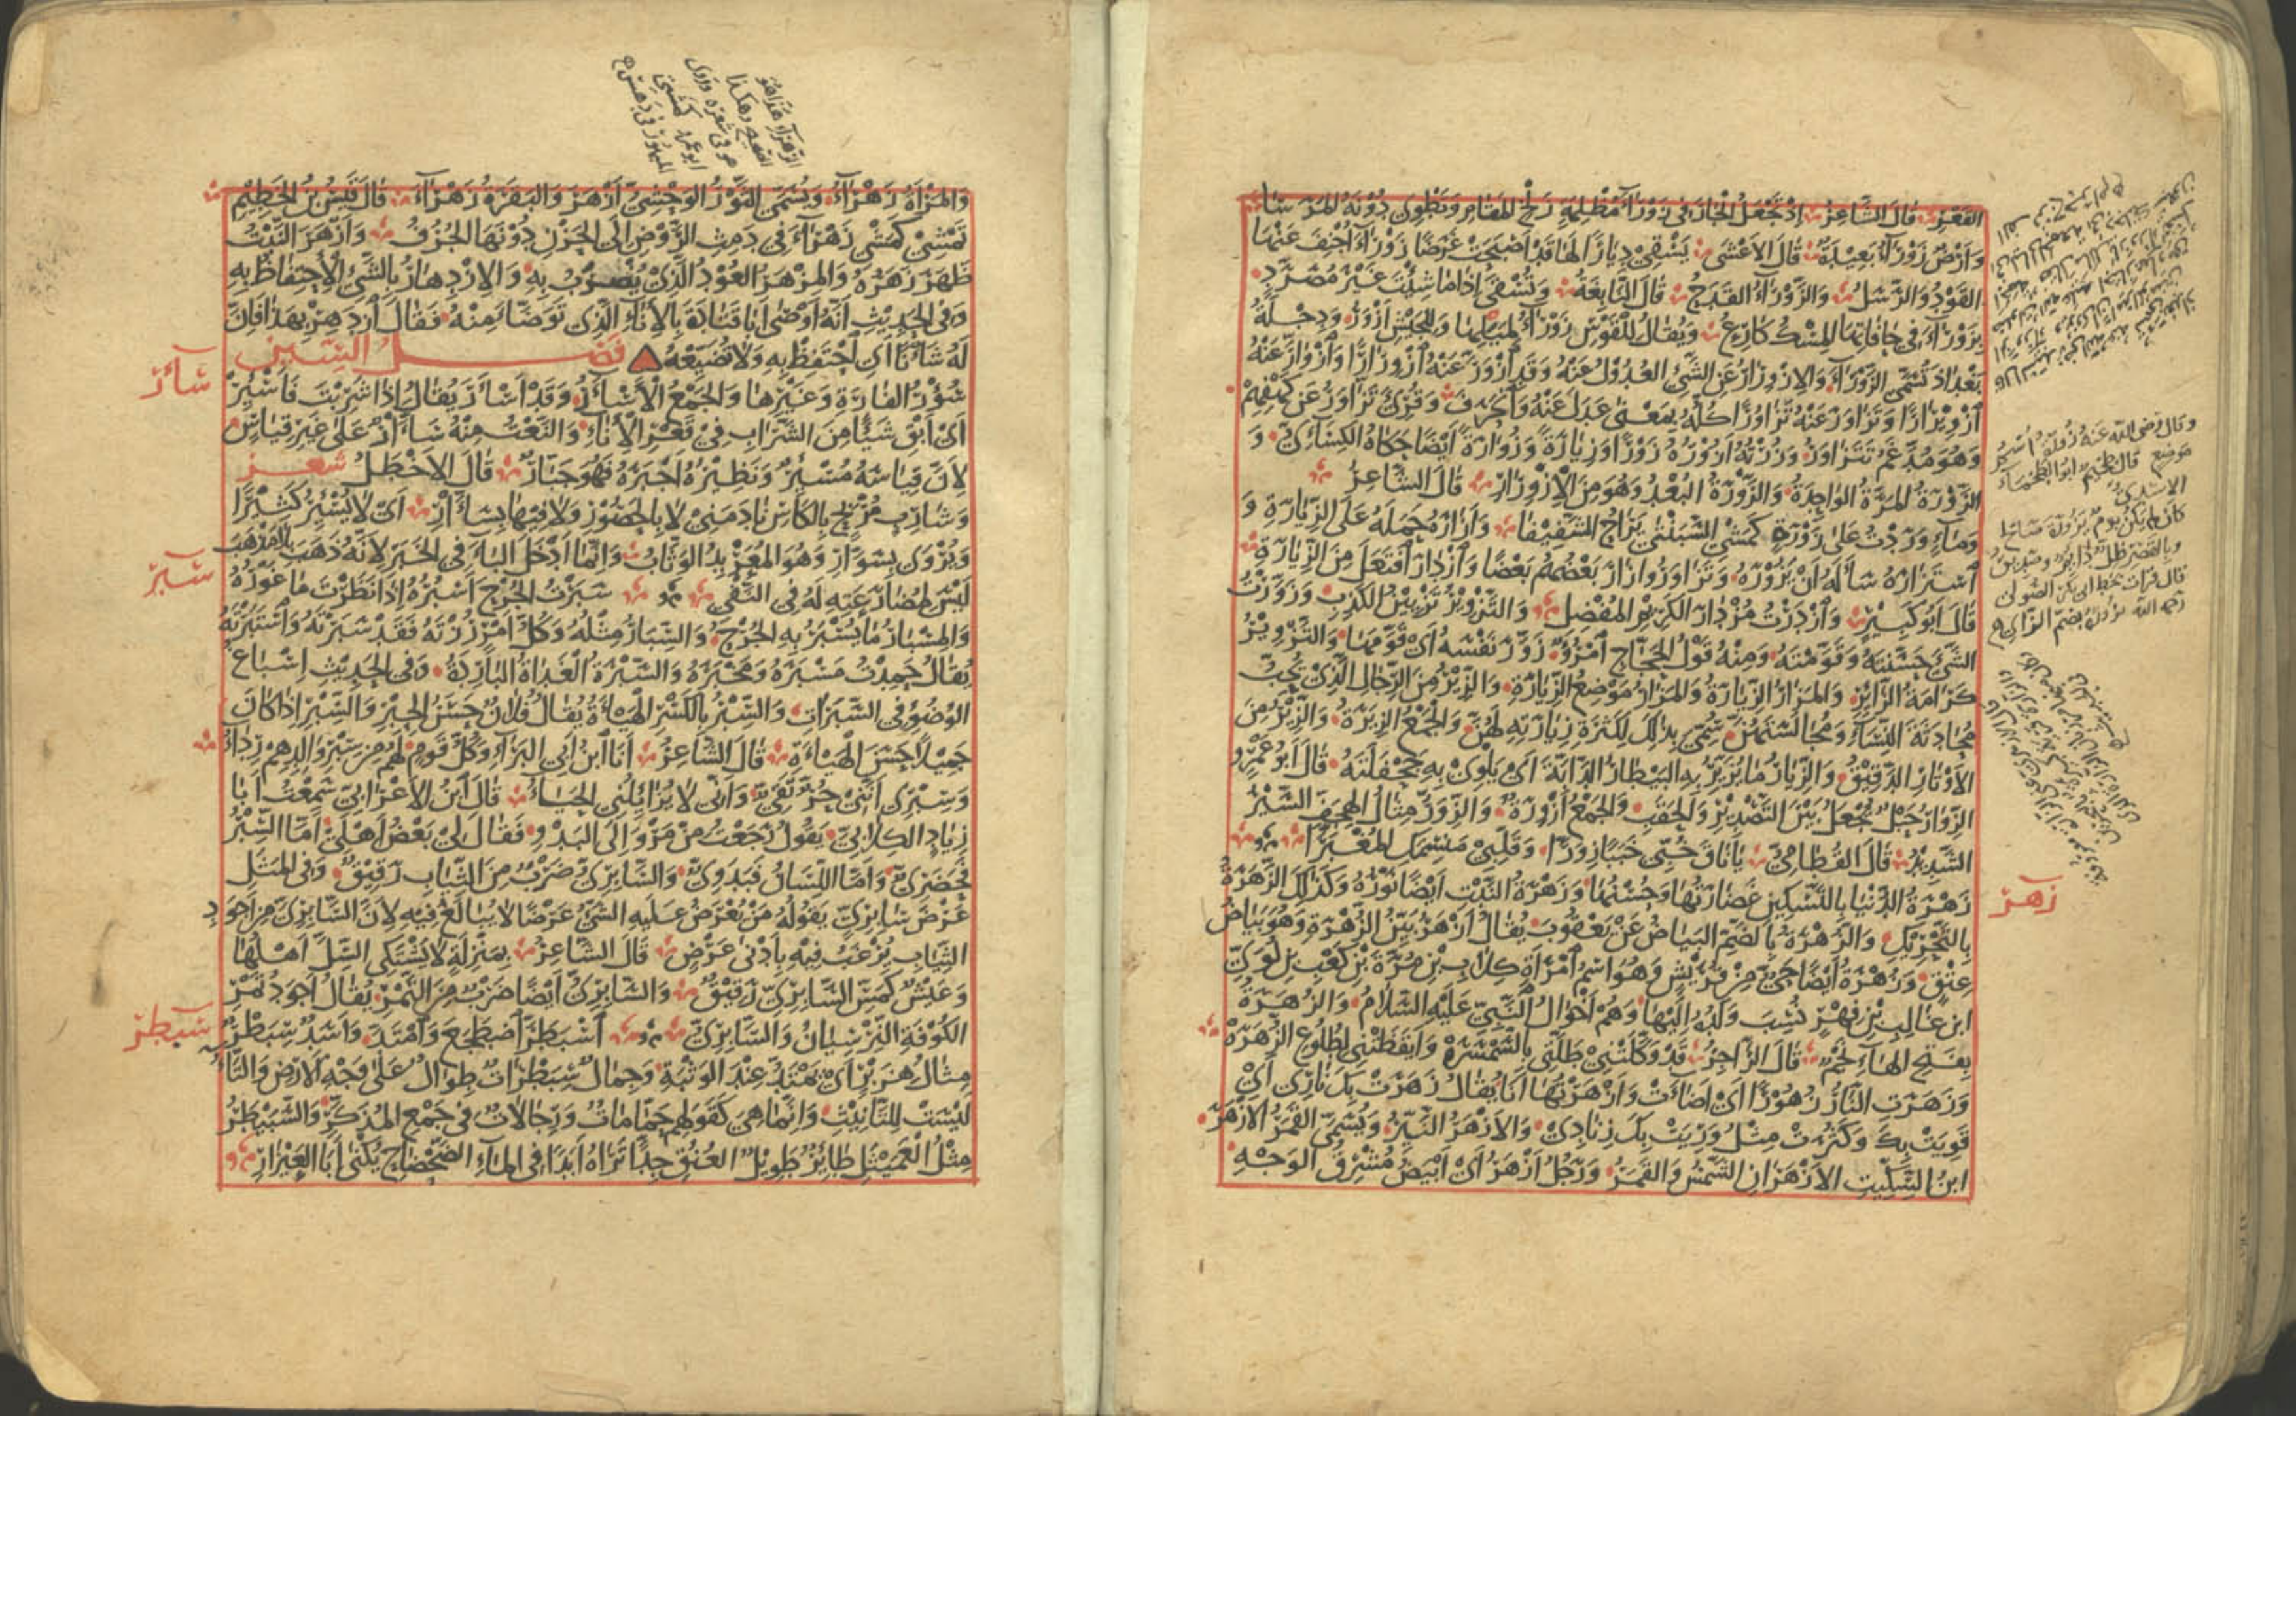 القعر قال الشاعر إذ تجعل الجار في زوراء مظلمة زلخ المقام وتطوي دونه المرسا
وأرض زوراء بعيدة قال الأعشى يسقي ديارا لها قد أصبحت غرضا زوراء أجنف عنها
القود والرسل والزوراء القدح قال النابغة وتسقى إذا ما شئت غير مصرد
بزوراء في حافاتها المسك كارع ويقال للقوس زوراء لميلها وللجيش أزور ودجلة
بغداد تسمى الزوراء والازورار عن الشيء العدول عنه وقد ازور عنه ازورارا وازوار عنه
ازويرارا وتزاور عنه تزاورا كله بمعنى عدل عنه وانحرف وقرئ تزاور عن كهفهم
وهو مدغم تتزاور وزرته أزوره زورا وزيارة وزوارة أيضا حكاه الكسائي و
الزورة المرة الواحدة والزورة البعد وهو من الازورار قال الشاعر
وماء وردت على زورة كمشي السبنتى يراح الشفيفا وأزاره حمله على الزيارة و
استزاره سأله أن يزوره وتزاوروا زار بعضهم بعضا وازدار افتعل من الزيارة
قال أبو كبير وازدرت مزدار الكريم المفضل والتزوير تزيين الكذب وزورت
الشيء حسنته وقومته ومنه قول الحجاج امرؤ زور نفسه أي قومها والتزوير
كرامة الزائر والمزار الزيارة والمزار موضع الزيارة والزير من الرجال الذي يحب
محادثة النساء ومجالستهن سمي بذلك لكثرة زيارته لهن والجمع الزيرة والزير من
الأوتار الدقيق والزيار ما يزير به البيطار الدابة أي يلوي به جحفلته قال أبو عمرو
الزوار حبل يجعل بين التصدير والحقب والجمع أزورة والزور مثال الهجف السير
الشديد قال القطامي يا ناق خبي خببا زورا وقلبي منسمك المغبرا
زهر
زهرة الدنيا بالتسكين غضارتها وحسنها وزهرة النبت أيضا نوره وكذلك الزهرة
بالتحريك والزهرة بالضم البياض عن يعقوب يقال أزهر بين الزهرة وهو بياض
عتق وزهرة أيضا حي من قريش وهو اسم امرأة كلاب بن مرة بن كعب بن لؤي
ابن غالب بن فهر نسب ولده إليها وهم أخوال النبي عليه السلام والزهرة
بفتح الهاء نجم قال الراجز قد وكلتني طلتي بالسمسرة وأيقظتني لطلوع الزهرة
وزهرت النار زهورا أي أضاءت وأزهرتها أنا يقال زهرت بك ناري أي
قويت بك وكثرت مثل وريت بك زنادي والأزهر النير ويسمى القمر الأزهر
ابن السكيت الأزهران الشمس والقمر ورجل أزهر أي أبيض مشرق الوجه
وقال رضي الله عنه
موضع قال
الأسدي
كان لم يكن يوم بزورة صالح
وبالقصر ظل دائم وصديق
قال قرأت بخط أبي بكر الصولي
رحمه الله بضم الزاي
والمرأة زهراء ويسمى الثور الوحشي أزهر والبقرة زهراء قال قيس بن الخطيم
تمشي كمشي زهراء في دمث الروض إلى الحزن دونها الجرف وأزهر النبت
ظهر زهره والمزهر العود الذي يضرب به والازدهار بالشيء الاحتفاظ به
وفي الحديث أنه أوصى أبا قتادة بالإناء الذي توضأ منه فقال ازدهر بهذا فإن
له شأنا أي احتفظ به ولا تضيعه فصل السين
سأر
سؤر الفارة وغيرها والجمع الأسآر وقد أسأر يقال إذا شربت فأسئر
أي أبق شيئا من الشراب في قعر الإناء والنعت منه سأار على غير قياس
لأن قياسه مسئر ونظيره أجبره فهو جبار قال الأخطل شعر
وشارب مربح بالكأس نادمني لا بالحصور ولا فيها بسأار أي لا يسئر كثيرا
ويروى بسوار وهو المعربد الوثاب وإنما أدخل الباء في الخبر لأنه ذهب بلا مذهب
سبر
ليس لمضارعته له في النفي سبرت الجرح أسبره إذا نظرت ما غوره
والمسبار ما يسبر به الجرح والسبار مثله وكل أمر رزته فقد سبرته واستبرته
يقال حمدت مسبره ومخبره والسبرة الغداة الباردة وفي الحديث إسباغ
الوضوء في السبرات والسبر بالكسر الهيأة يقال فلان حسن الحبر والسبر إذا كان
جميلا حسن الهياءة قال الشاعر أنا ابن أبي البراء وكل قوم لهم من سبر والدهم رداء
وسبري أنني حر تقي وأني لا يزايلني الحياء قال ابن الأعرابي سمعت أبا
زياد الكلابي يقول رجعت من مرو إلى البدو فقال لي بعض أهلي أما السبر
فحضري وأما اللسان فبدوي والسابري ضرب من الثياب رقيق وفي المثل
عرض سابري يقوله من يعرض عليه الشيء عرضا لا يبالغ فيه لأن السابري من أجود
الثياب يرغب فيه بأدنى عرض قال الشاعر بمنزلة لا يشتكي السل أهلها
وعيش كمس السابري رقيق والسابري أيضا ضرب من التمر يقال أجود تمر
سبطر
الكوفة النرسيان والسابري اسبطر اضطجع وامتد وأسد سبطر
مثال هزبر أي يمتد عند الوثبة وجمال سبطرات طوال على وجه الأرض والتاء
ليست للتأنيث وإنما هي كقولهم حمامات ورجالات في جمع المذكر والسبيطر
مثل العميثل طائر طويل العنق جدا تراه أبدا في الماء الضحضاح يكنى أبا العيزار